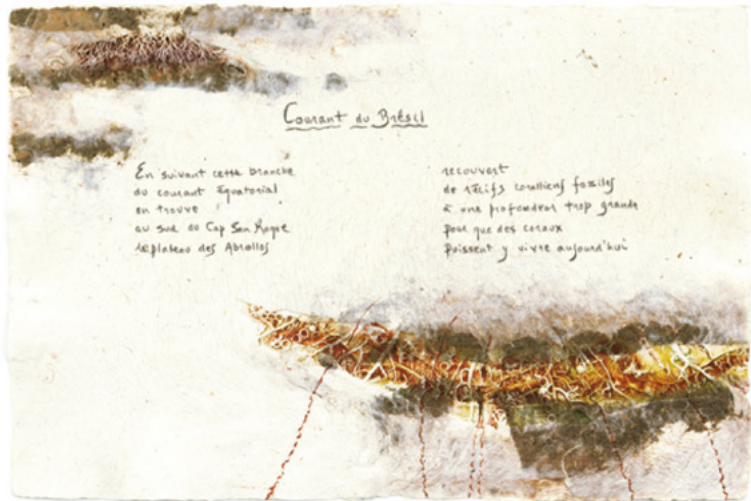 Courant du Brésil
En suivant cette branche
du courant Equatorial
on trouve
au sud du Cap San Roque
le plateau des Abrollos
recouvert
de récifs coralliens fossiles
à une profondeur trop grande
pour que des coraux
puissent y vivre aujourd'hui